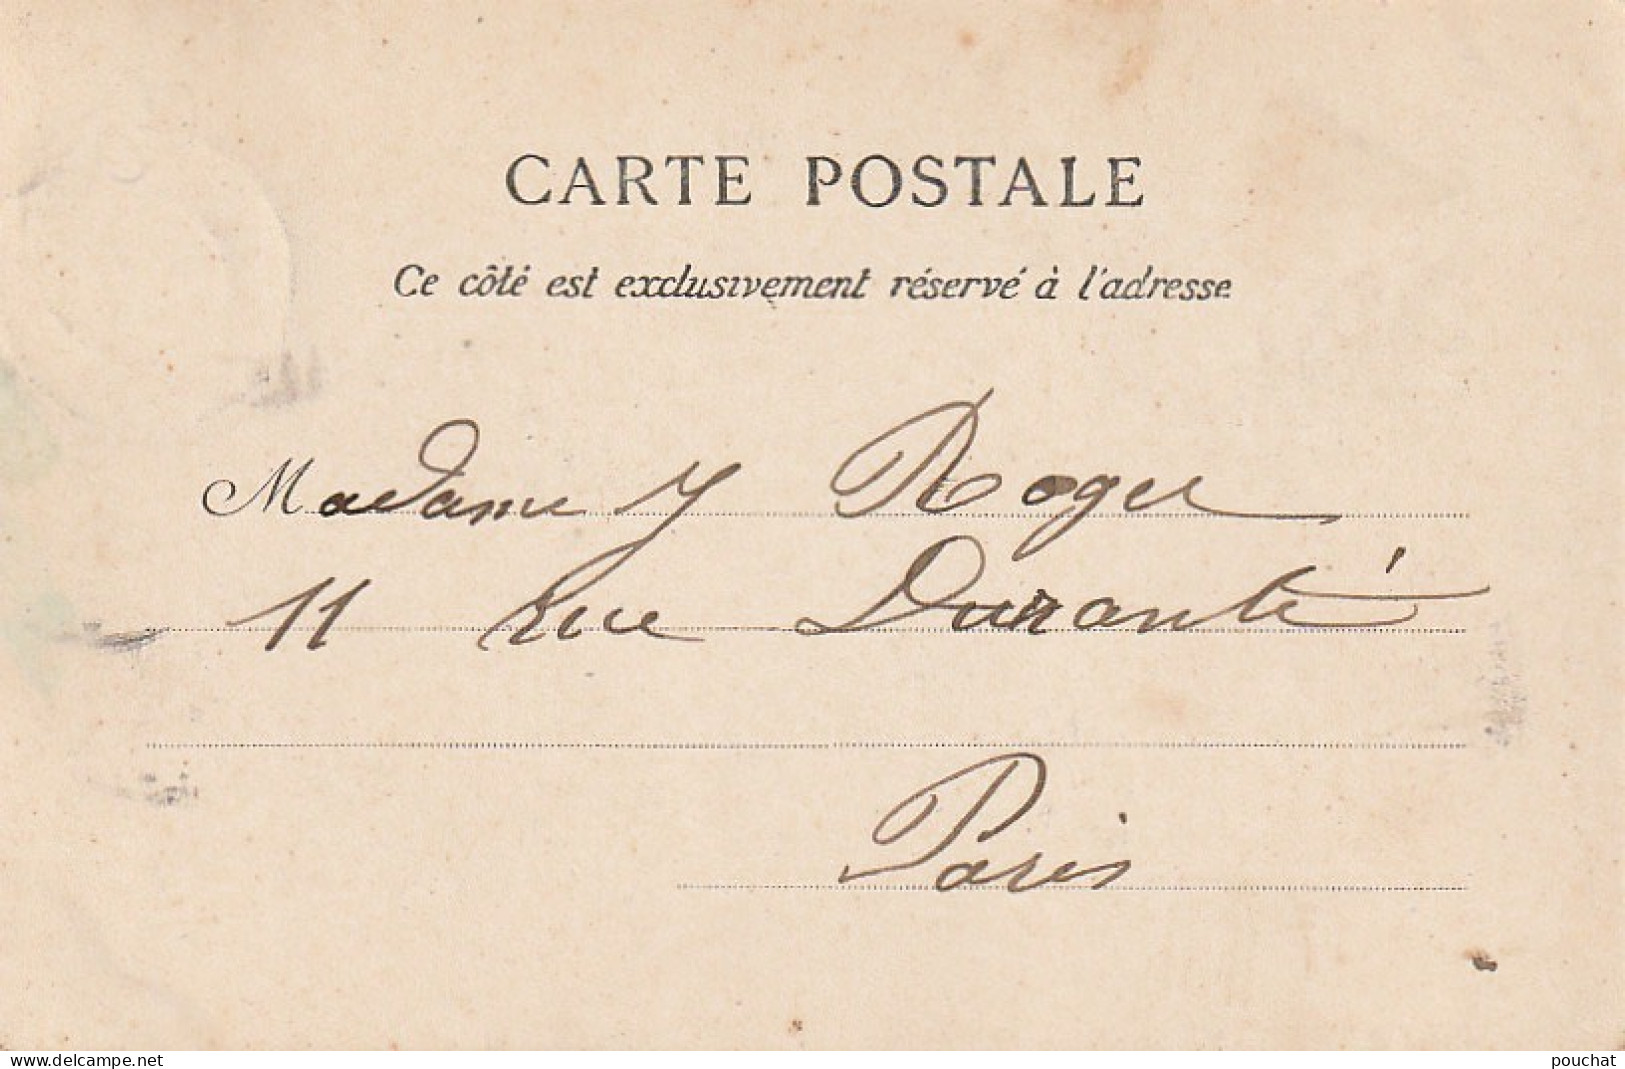 CARTE POSTALE
Ce côté est exclusivement réservé à l'adresse
Madame J Roger
11 Rue Duranti
Paris
www.delcampe.net
pouchat